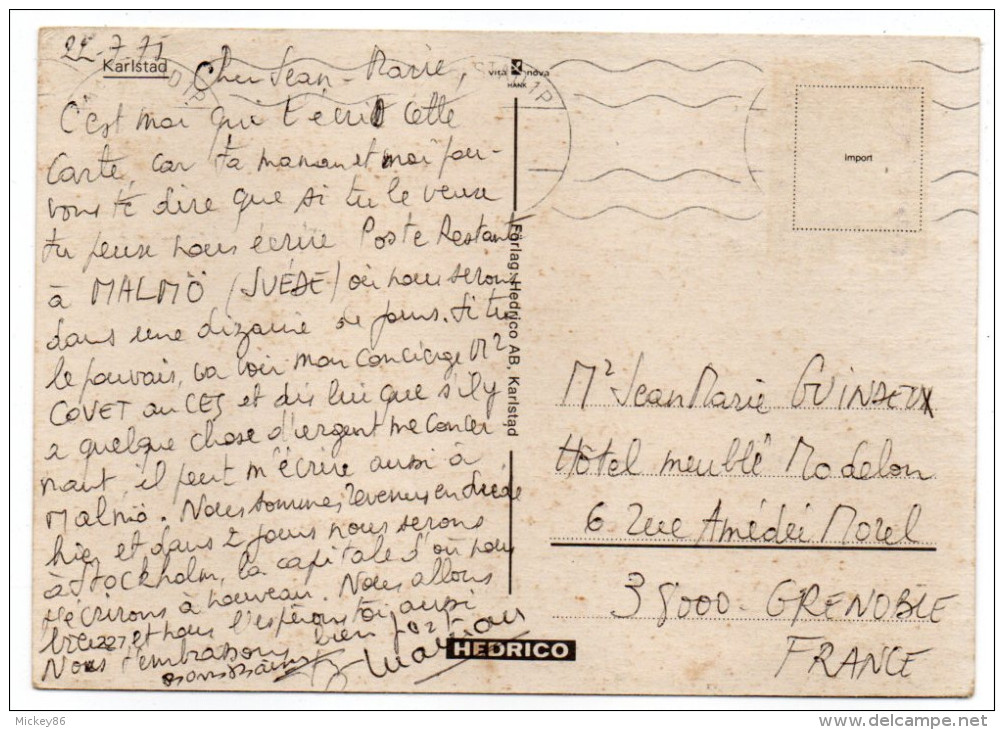 22-7-71
Karlstad
Cher Jean-Marie,
C'est moi qui t'écrit cette
carte car ta maman et moi pou-
vons te dire que si tu le veux
tu peux nous écrire Poste Restante
à MALMÖ (SUÉDE) où nous serons
dans une dizaine de jours. Si tu
le pouvais, va voir mon concierge Mr
COVET au CES et dis lui que s'il y
a quelque chose d'urgent me concer
nant il peut m'écrire aussi à
Malmö. Nous sommes revenus en Suède
hier et dans 2 jours nous serons
à STOCKHOLM, la capitale d'où nous
t'écrirons à nouveau. Nous allons
bien et nous l'espérons toi aussi
Nous t'embrassons bien fort
Maman
vita nova
HANK
Förlag: Hedrico AB, Karlstad
HEDRICO
Import
Mr Jean Marie GUINDEUX
Hôtel meublé Modelon
6 rue Amédéi Morel
38000 - GRENOBLE
FRANCE
Mickey86
www.delcampe.net